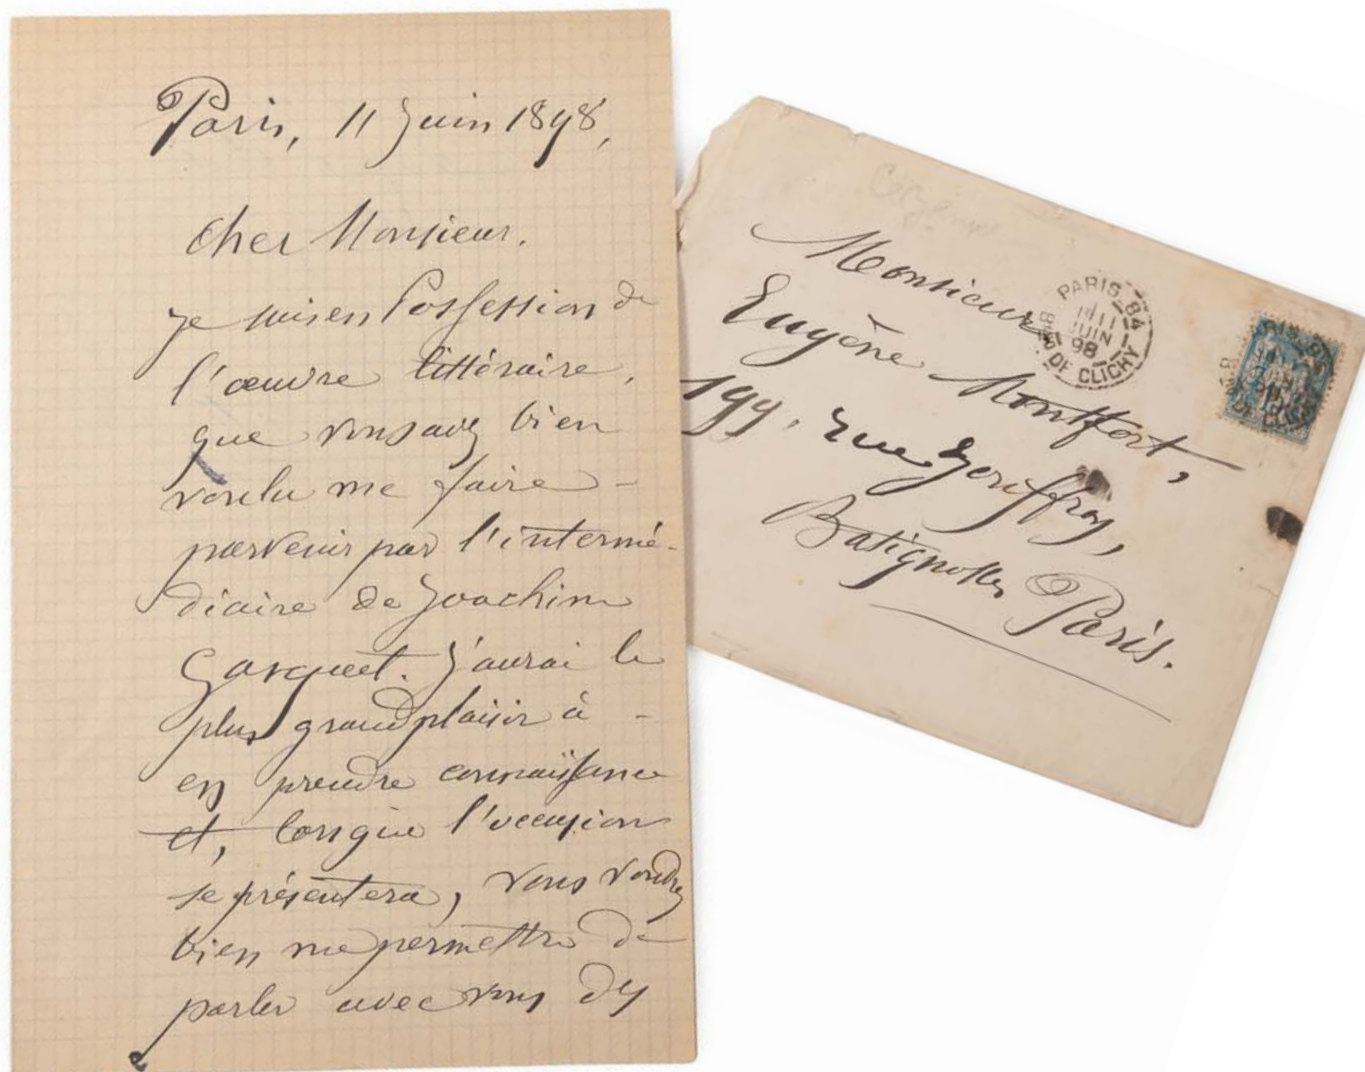 Paris, 11 Juin 1898,
Cher Monsieur.
je suis en possession de
l'œuvre littéraire,
que vous avez bien
voulu me faire -
parvenir par l'intermé-
diaire de Joachim
Gasquet. J'aurai le
plus grand plaisir à -
en prendre connaissance
et, lorsque l'occasion
se présentera, vous voudrez
bien me permettre de
parler avec vous des
Monsieur
Eugène Montfort,
199, rue
Batignolles Paris.
PARIS_84
11
JUIN
98
DE CLICHY